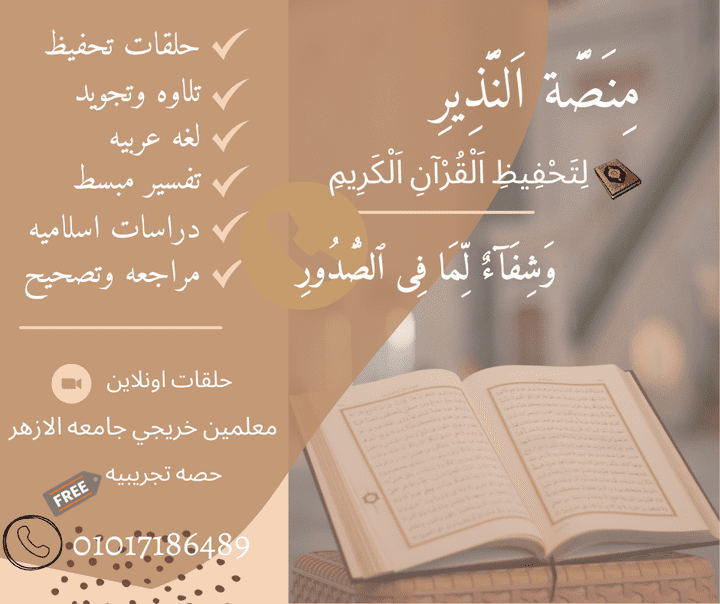 مِنَصَّة اَلنَّذِيرِ
لِتَحْفِيظِ اَلْقُرْآنِ اَلْكَرِيمِ
وَشِفَآءٌ لِّمَا فِى ٱلصُّدُورِ
حلقات تحفيظ
تلاوه وتجويد
لغه عربيه
تفسير مبسط
دراسات اسلاميه
مراجعه وتصحيح
حلقات اونلاين
معلمين خريجي جامعه الازهر
حصه تجريبيه
FREE
01017186489